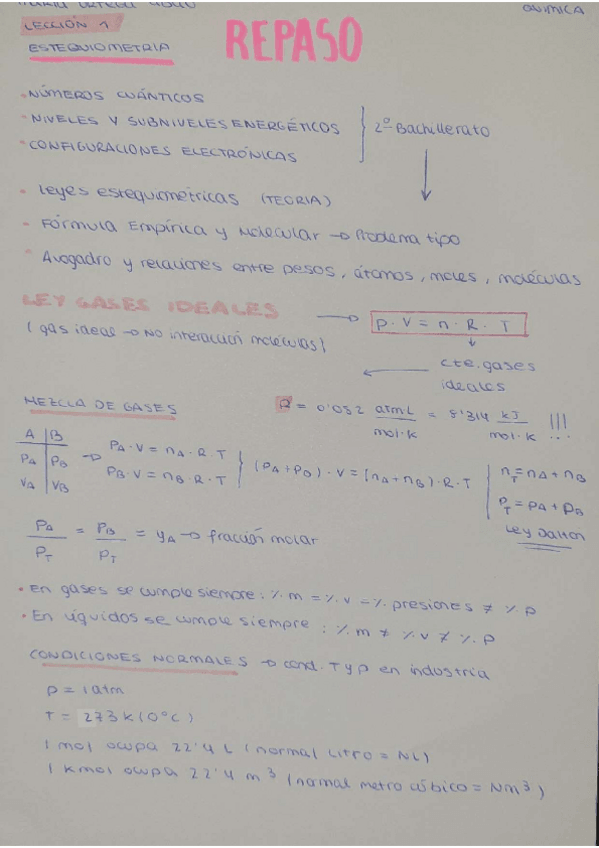 QUIMICA
LECCIÓN 1
ESTEQUIOMETRIA
REPASO
• NÚMEROS CUÁNTICOS
• NIVELES Y SUBNIVELES ENERGÉTICOS } 2º Bachillerato
• CONFIGURACIONES ELECTRÓNICAS
• Leyes estequiométricas (TEORIA)
- Fórmula Empírica y Molecular → Problema tipo
• Avogadro y relaciones entre pesos, átomos, moles, moléculas
LEY GASES IDEALES → P · V = n · R · T
(gas ideal → NO interacción moléculas)
cte. gases
ideales
MEZCLA DE GASES
R = 0'082 atm L / mol·K = 8'314 kJ / mol·K !!!
A | B
PA | PB → PA · V = nA · R · T
VA | VB PB · V = nB · R · T } (PA + PB) · V = (nA + nB) · R · T
nT = nA + nB
PT = PA + PB
Ley Dalton
PA / PT = PB / PT = yA → fracción molar
• En gases se cumple siempre: %m = %v = % presiones ≠ % p
• En líquidos se cumple siempre: %m ≠ %v ≠ %p
CONDICIONES NORMALES → cond. T y p en industria
P = 1 atm
T = 273 K (0ºC)
1 mol ocupa 22'4 L (normal Litro = NL)
1 Kmol ocupa 22'4 m³ (normal metro cúbico = Nm³)